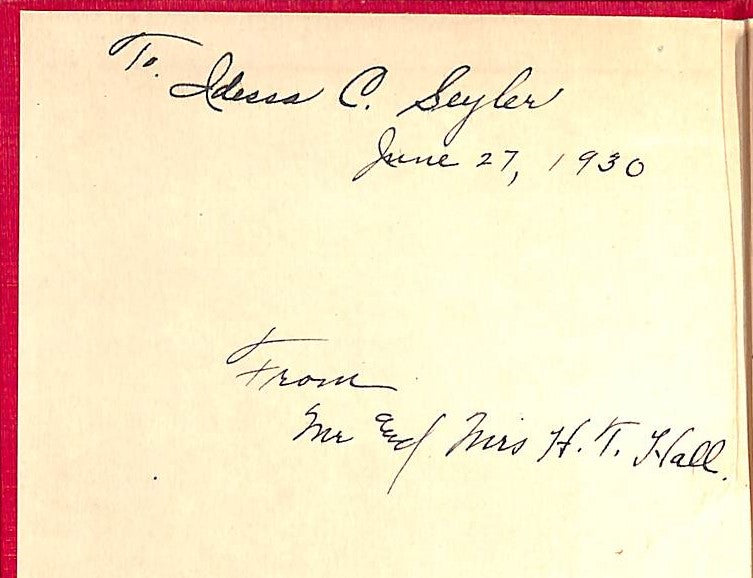 To. Idessa C. Seyler
June 27, 1930
From
Mr and Mrs H. T. Hall.